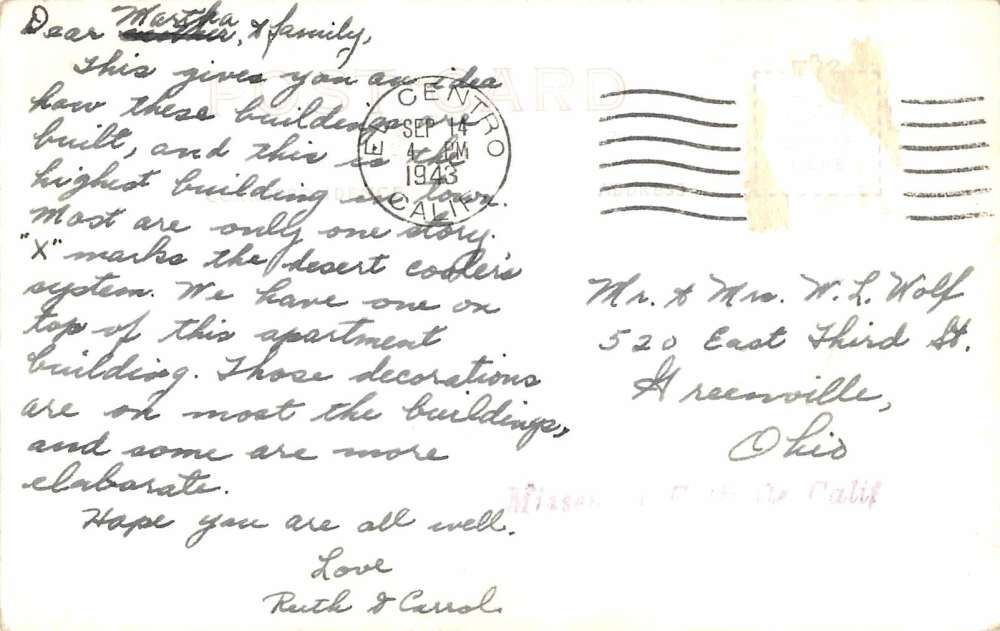 Dear Martha, & family,
This gives you an idea
how these buildings are
built, and this is the
highest building in town.
Most are only one story.
"X" marks the desert cooler's
system. We have one on
top of this apartment
building. Those decorations
are on most the buildings,
and some are more
elaborate.
Hope you are all well.
Love
Ruth & Carrol
POST CARD
EL CENTRO
SEP 14
4 PM
1943
CALIF.
ADDRESS
Mr. & Mrs. W. L. Wolf
520 East Third St.
Greenville,
Ohio
Calif